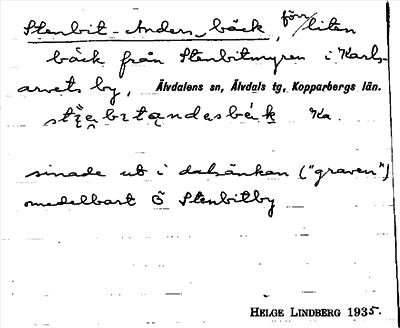 Stenbit-Anders, bäck, förr/liten
bäck från Stenbitmyren i Karls-
arvets by, Älvdalens sn, Älvdals tg, Kopparbergs län.
Ka.
sinade ut i dalsänkan ("graven")
omedelbart Ö Stenbitby
HELGE LINDBERG 1935.